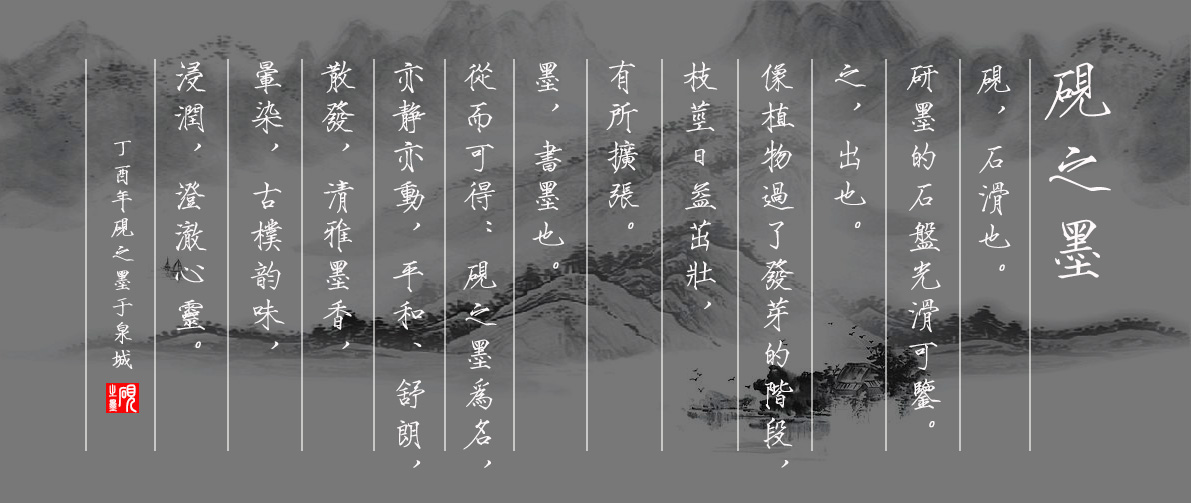 硯之墨
硯，石滑也。
研墨的石盤光滑可鑒。
之，出也。
像植物過了發芽的階段，
枝莖日益茁壯，
有所擴張。
墨，書墨也。
從而可得：硯之墨爲名，
亦靜亦動，平和、舒朗，
散發，清雅墨香，
暈染，古樸韵味，
浸潤，澄澈心靈。
丁酉年硯之墨于泉城
硯之墨